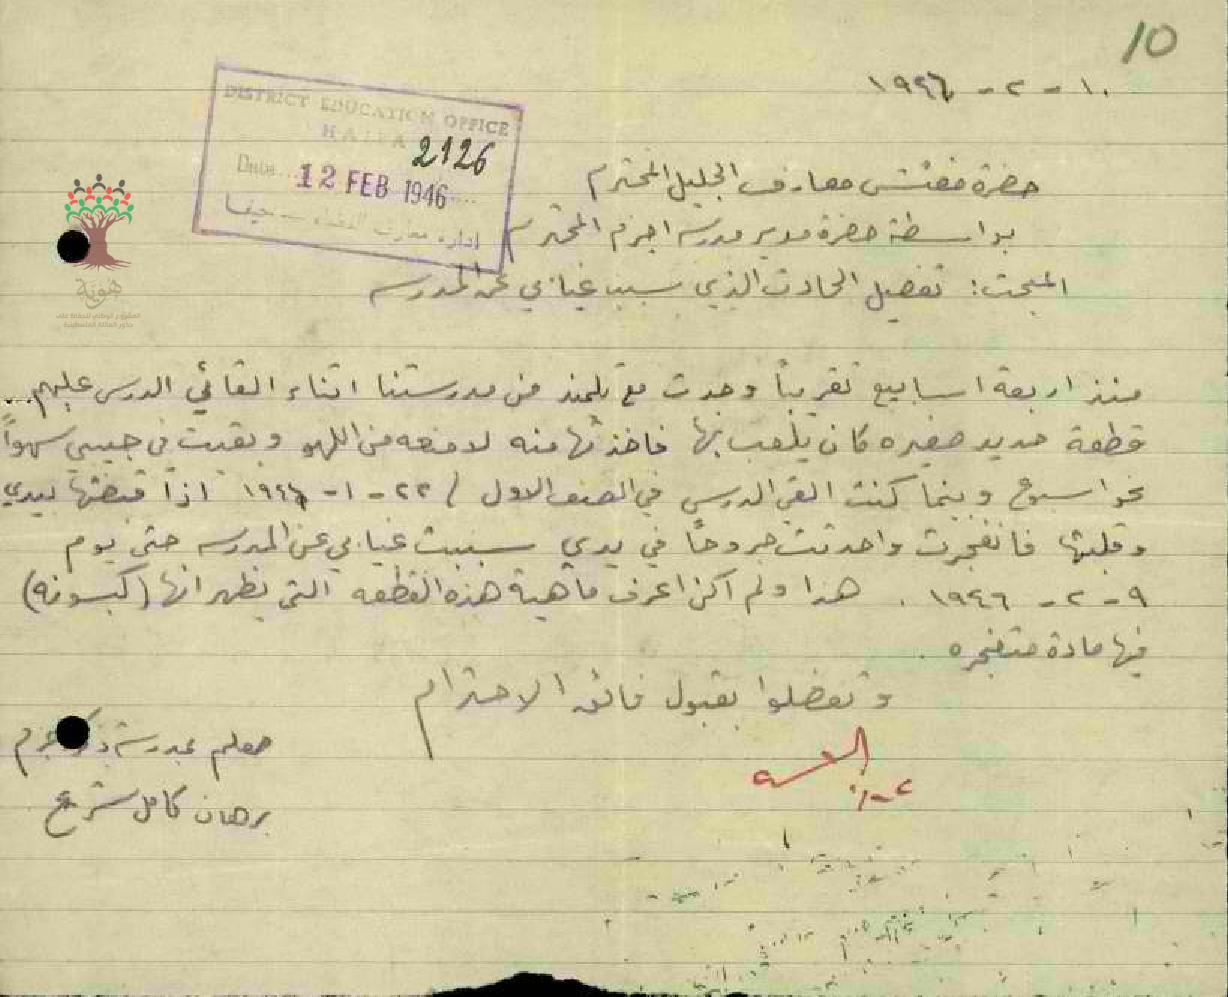 10
١٠ - ٢ - ١٩٤٦
DISTRICT EDUCATION OFFICE
HAIFA
2126
Date... 12 FEB 1946
ادارة معارف القضاء - حيفا
حضرة مفتش معارف الجليل المحترم
بواسطة حضرة مدير مدرسة اجزم المحترم
المبحث: تفصيل الحادث الذي سبب غيابي عن المدرسه
هوية
المشروع الوطني للحفاظ على
جذور العائلة الفلسطينية
منذ اربعة اسابيع تقريباً وجدت مع تلميذ من مدرستنا اثناء القائي الدرس عليهم...
قطعة حديد صغيره كان يلعب بها فاخذتها منه لامنعه من اللهو وبقيت في جيبي سهواً
نحو اسبوع وبينما كنت القي الدرس في الصف الاول / ٢٢ - ١ - ١٩٤٦ اذا قبضتها بيدي
وقلبتها فانفجرت واحدثت جروحاً في يدي سببت غيابي عن المدرسه حتى يوم
٩ - ٢ - ١٩٤٦ . هذا ولم اكن اعرف ماهية هذه القطعه التي يظهر انها (كبسونه)
فيها مادة متفجره .
وتفضلوا بقبول فائق الاحترام
معلم بمدرسة
برهان كامل